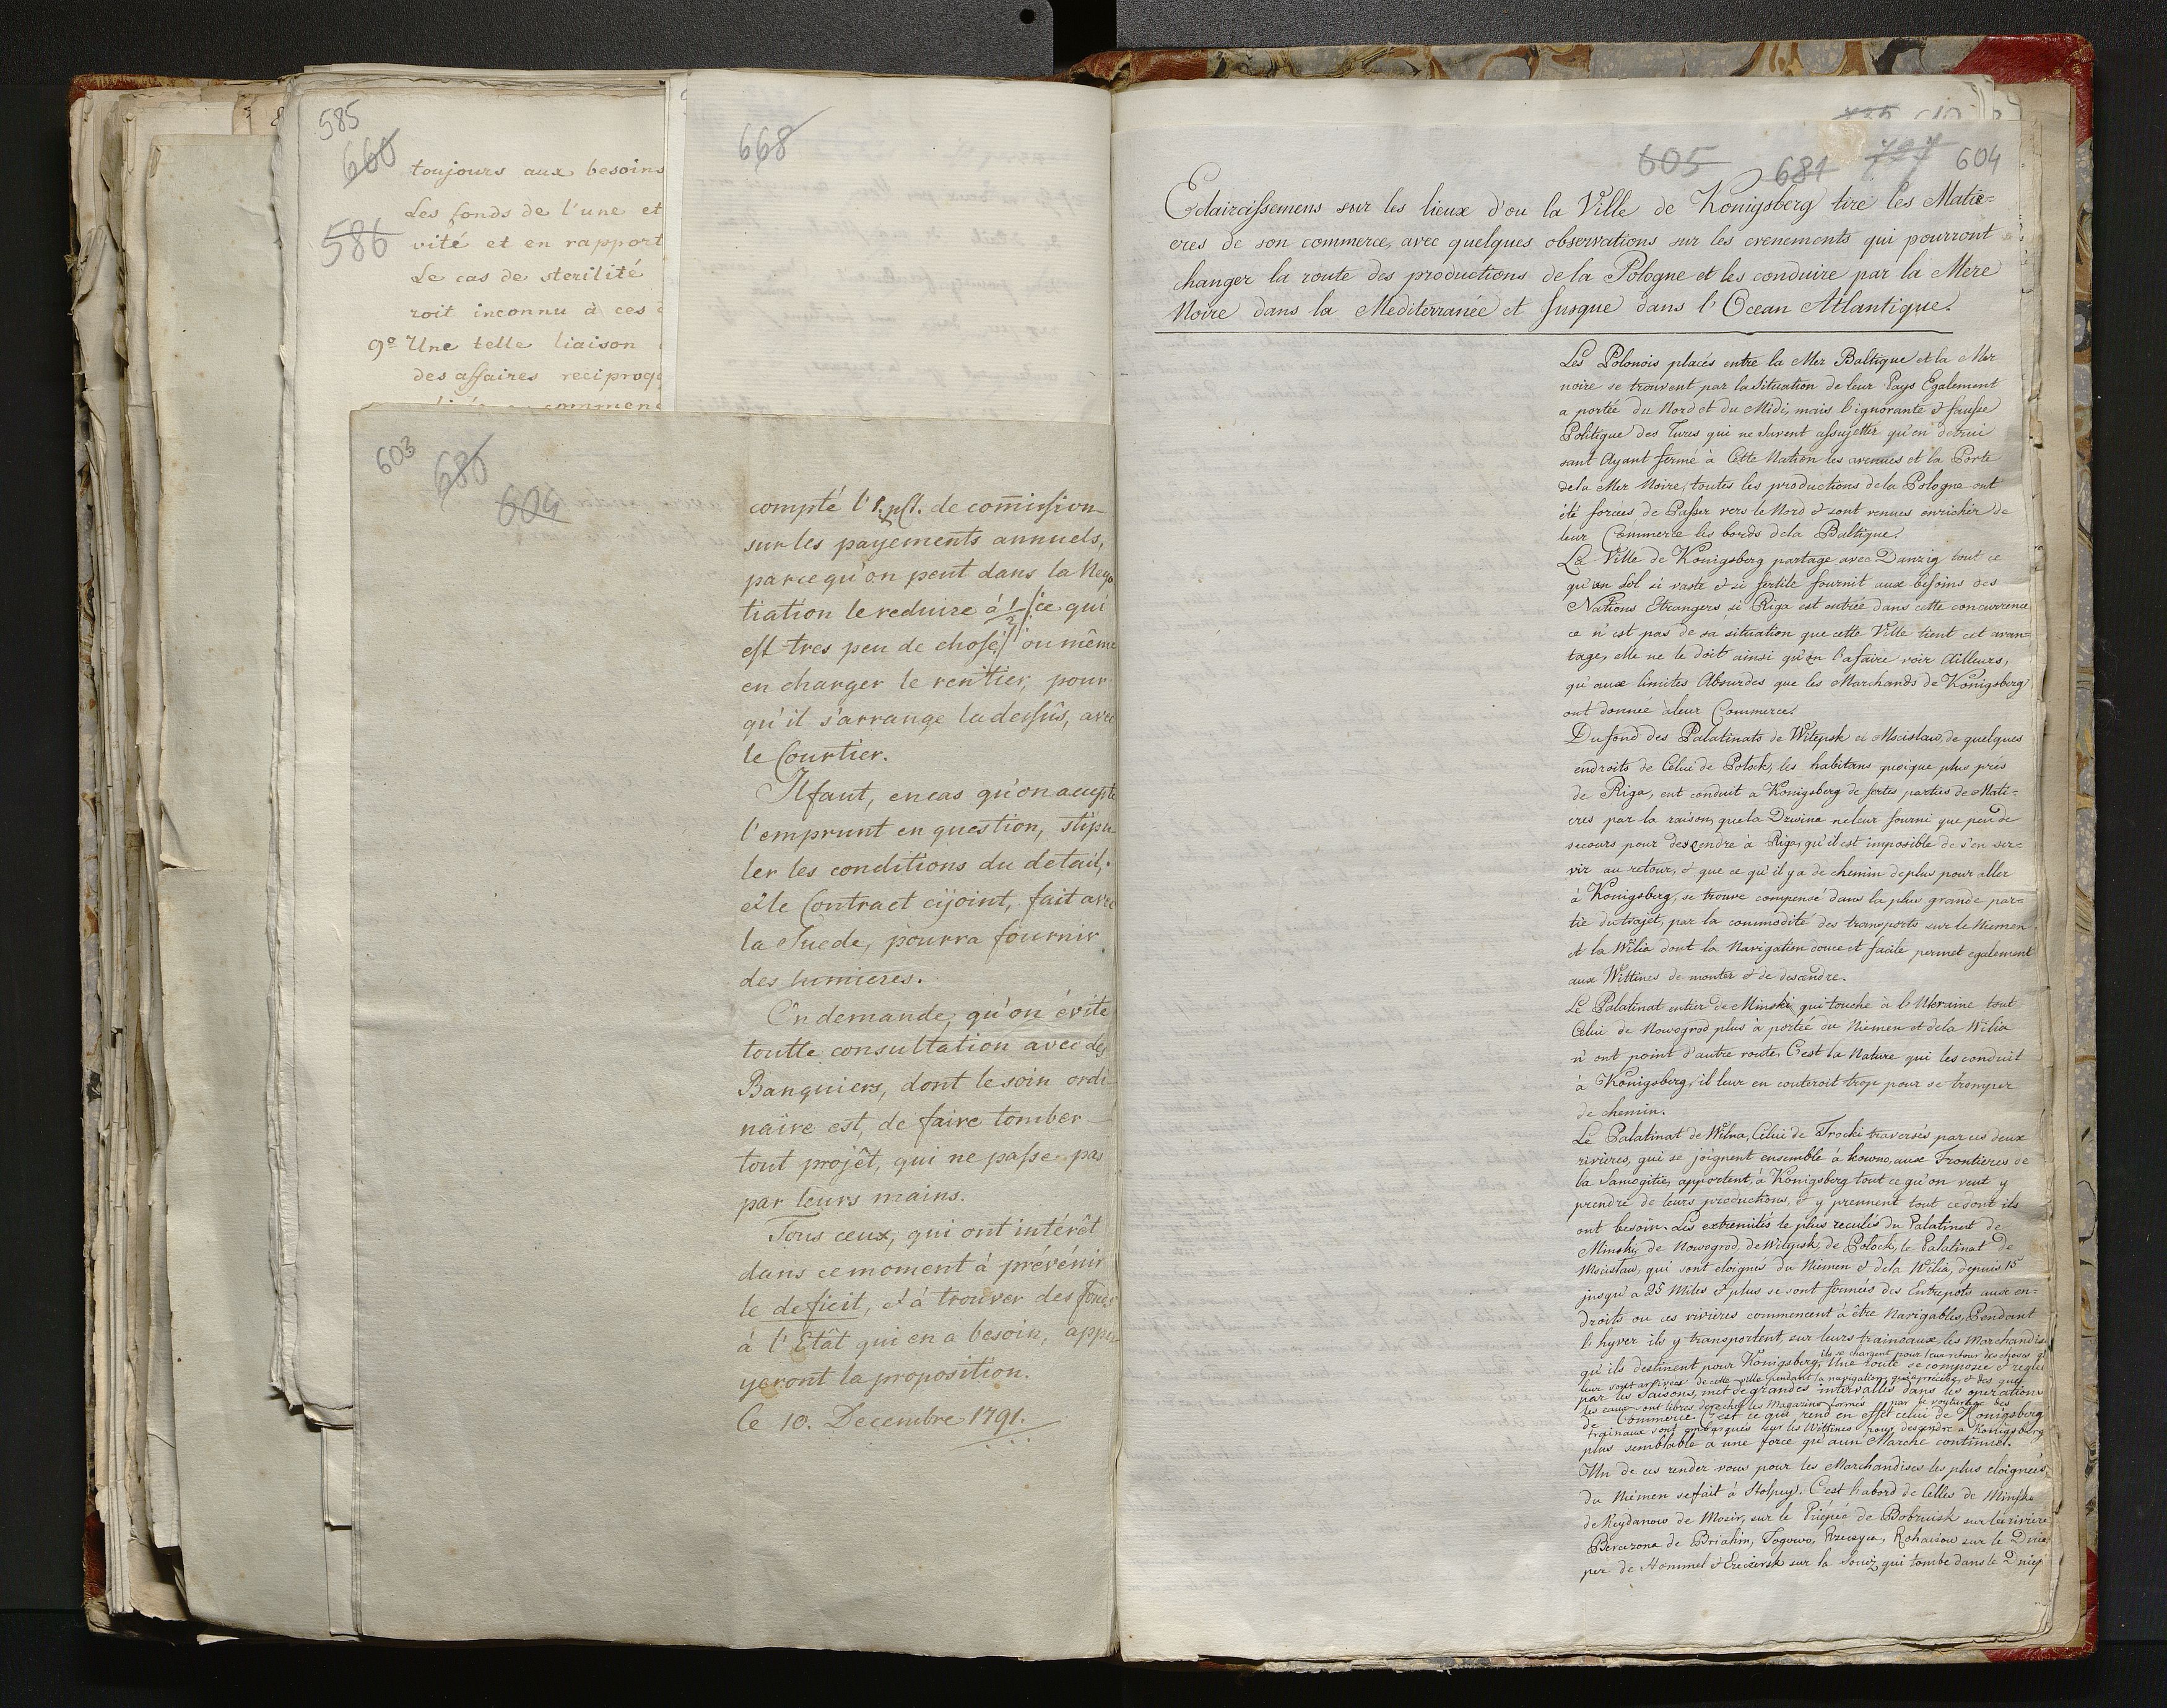 585
660
586
toujours aux besoins
Les fonds de l'une et
vité et en rapport
Le cas de sterilité
roit inconnu à ces
9º Une telle liaison
des affaires reciproq
commenc
668
603
680
604
compté l' 1. de com̃ission
sur les payements annuels,
parcequ'on peut dans la Nego
tiation le reduire à 1/2 /:ce qui
est tres peu de chose:/ ou même
en charger le rentier, pour
qu'il s'arrange ladessûs, avec
le Courtier.
Il faut, encas qu'on accepte
l'emprunt en question, stipu
ler les conditions du detail,
et le Contract cijoint, fait avec
la Suede, pourra fournir
des lumieres.
On demande, qu'on évite
toutte consultation avec des
Banquiers, dont le soin ordi
naire est, de faire tomber
tout projêt, qui ne passe pas
par leurs mains.
Tous ceux, qui ont intérêt
dans ce moment à prévénir
le deficit, et à trouver des fonds
à l'Etât qui en a besoin, appu
yeront la proposition.
Ce 10. Decembre 1791.
605 681 727 604
Eclaircissemens sur les lieux d'ou la Ville de Konigsberg tire les Matie=
eres de son commerce, avec quelques observations sur les evenements qui pourront
changer la route des productions de la Pologne et les conduire par la Mere
Noire dans la Mediterranée et Jusque dans l'Ocean Atlantique.
Les Polonois placés entre la Mer Baltique et la Mer
noire se trouvent par la Situation de leur Pays Egalement
a portée du Nord et du Midi, mais l'ignorante & fausse
Politique des Turcs qui ne savent assujettir qu'en detrui
sant Ayant fermé à Cette Nation les avenues et la Porte
dela Mer Noire, toutes les productions dela Pologne ont
été forcées de Passer vers le Nord & sont venues enrichir de
leur Commerce les bords dela Baltique.
La Ville de Konigsberg partage avec Danzig tout ce
qu'un Sol si vaste & si fertile fournit aux besoins des
Nations Etrangers si Riga est entrée dans cette concurrence
ce n'est pas de sa situation que cette Ville tient cet avan=
tage, elle ne le doit ainsi qu'on l'a faire voir Ailleurs,
qu'aux limites Absurdes que les Marchands de Konigsberg
ont donnee aleur Commerce.
Du fond des Palatinats de Witepsk et Mscislaw, de quelques
endroits de Celui de Polock, les habitans quoique plus près
de Riga, ont conduit a Konigsberg de fortes parties de Mati=
eres par la raison, que la Drwina ne leur fourni que peu de
secours pour descendre à Riga, qu'il est imposible de s'en ser=
vir au retour, & que ce qu'il y a de chemin de plus pour aller
à Konigsberg, se trouve compensé dans la plus grande par=
tie du trajet, par la commodité des transports sur le Niemen
et la Wilia dont la Navigation douce et facile permet egalement
aux Wittines de monter & de descendre.
Le Palatinat entier de Minski qui touche à l'Ukraine tout
Celui de Nowogrod plus à portée du Niemen et dela Wilia
n'ont point d'autre route, C'est la Nature qui les conduit
à Konigsberg, il leur en couteroit trop pour se tromper
de chemin.
Le Palatinat de Wilna, Celui de Trocki traversés par ces deux
rivières, qui se joignent ensemble à kowno, aux Frontieres de
la Samogitie, apportent, à Konigsberg tout ce qu'on veut y
prendre de leurs productions, & y prennent tout ce dont ils
ont besoin. Les extremités le plus reculés du Palatinat de
Minski, de Nowogrod, de Witepsk, de Polock, le Palatinat de
Mscislaw, qui sont eloignes du Niemen & dela Wilia, depuis 15
jusqu'a 25 Miles & plus se sont formés des Entrepots aux en=
droits ou ces rivières commencent à être Navigables, Pendant
l'hyver ils y transportent, sur leurs traineaux les Marchandis
qu'ils destinent pour Konigsberg, ils se chargent pour leur retour des choses q
Une route se composée & reglée
leur sont arrivées de cette ville pendant la navigation, precede, & des que
par les Saisons, met de grandes intervalles dans les operations
les eaux sont libres derechef les Magazins formés par le voiturage des
de Commerce C'est ce qui rend en effet celui de Konigsberg
trainaux sont embarqués sur les Wittines pour descendre a Konigsberg
plus semblable a une force qu'aun Marche continuel.
Un de ces rendez vous pour les Marchandises les plus eloignees,
du Niemen se fait à Stolpuy. C'est l'abord de Celles de Minsk
de Koydanow de Mosir, sur le Pripec de Bobruisk sur la riviere
Berezona de Briahin, Jogowo, Rzeczyca, Rohaiow sur le Dnie
per de Hommel & Czeczersk sur la qui tombe dans le Dniep